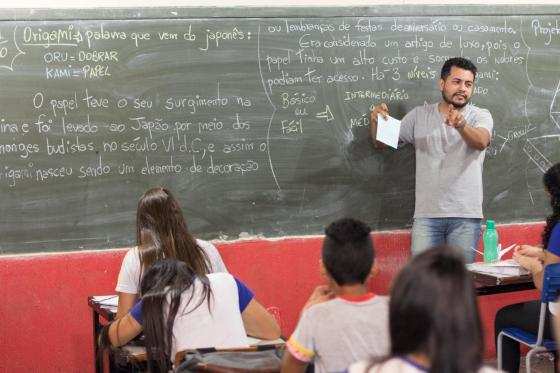 Origami → palavra que vem do japonês:
ORU = DOBRAR
KAMI = PAPEL
O papel teve o seu surgimento na
ina e foi levado ao Japão por meio dos
monges budistas no século VI d.C, e assim o
rigami nasceu sendo um elemento de decoração
ou lembranças de festas de aniversário ou casamento.
Era considerado um artigo de luxo, pois o
papel tinha um alto custo e somente os nobres
podiam ter acesso. Há 3 níveis
Básico
ou
Fácil ⇒
INTERMEDIÁRIO
Projeto